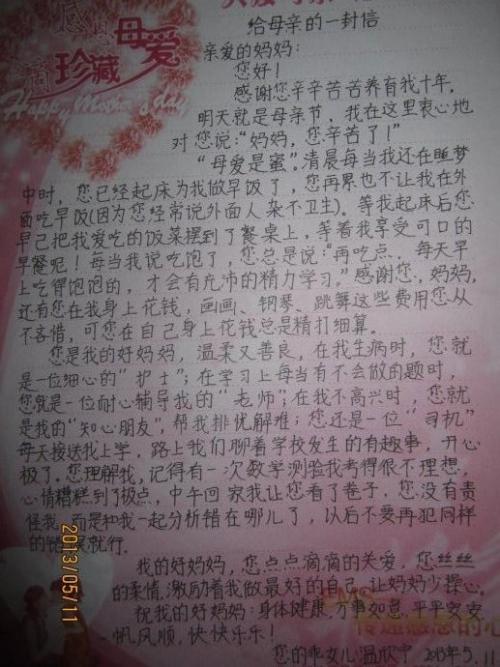 感恩
珍藏母爱
Happy Mother's day
给母亲的一封信
亲爱的妈妈:
您好!
感谢您辛辛苦苦养育我十年。
明天就是母亲节,我在这里衷心地
对您说:“妈妈,您辛苦了!”
“母爱是蜜”。清晨每当我还在睡梦
中时,您已经起床为我做早饭了,您再累也不让我在外
面吃早饭(因为您经常说外面人杂不卫生)。等我起床后您
早已把我爱吃的饭菜摆到了餐桌上,等着我享受可口的
早餐呢!每当我说吃饱了,您总是说:“再吃点,每天早
上吃得饱饱的,才会有充沛的精力学习。”感谢您,妈妈,
还有您在我身上花钱,画画、钢琴、跳舞这些费用您从
不吝惜,可您在自己身上花钱总是精打细算。
您是我的好妈妈,温柔又善良,在我生病时,您就
是一位细心的“护士”;在学习上每当有不会做的题时,
您就是一位耐心辅导我的“老师”;在我不高兴时,您就
是我的“知心朋友”,帮我排忧解难;您还是一位“司机”
每天接送我上学,路上我们聊着学校发生的有趣事,开心
极了。您理解我,记得有一次数学测验我考得很不理想,
心情糟糕到了极点,中午回家我让您看了卷子,您没有责
怪我,而是和我一起分析错在哪儿了,以后不要再犯同样
的错误就行。
我的好妈妈,您点点滴滴的关爱,您丝丝
的柔情,激励着我做最好的自己,让妈妈少操心。
祝我的好妈妈:身体健康,万事如意,平平安安
一帆风顺,快快乐乐!
您的乖女儿:温欣宁 2013年5.11
2013/05/11